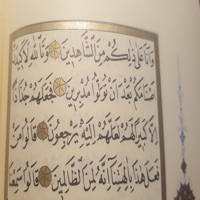 وَأَنَا عَلَىٰ ذَٰلِكُمْ مِنَ الشَّاهِدِينَ وَتَاللَّهِ لَأَكِيدَنَّ
أَصْنَامَكُمْ بَعْدَ أَنْ تُوَلُّوا مُدْبِرِينَ فَجَعَلَهُمْ جُذَاذًا
إِلَّا كَبِيرًا لَهُمْ لَعَلَّهُمْ إِلَيْهِ يَرْجِعُونَ قَالُوا مَنْ
فَعَلَ هَٰذَا بِآلِهَتِنَا إِنَّهُ لَمِنَ الظَّالِمِينَ قَالُوا سَمِعْنَا